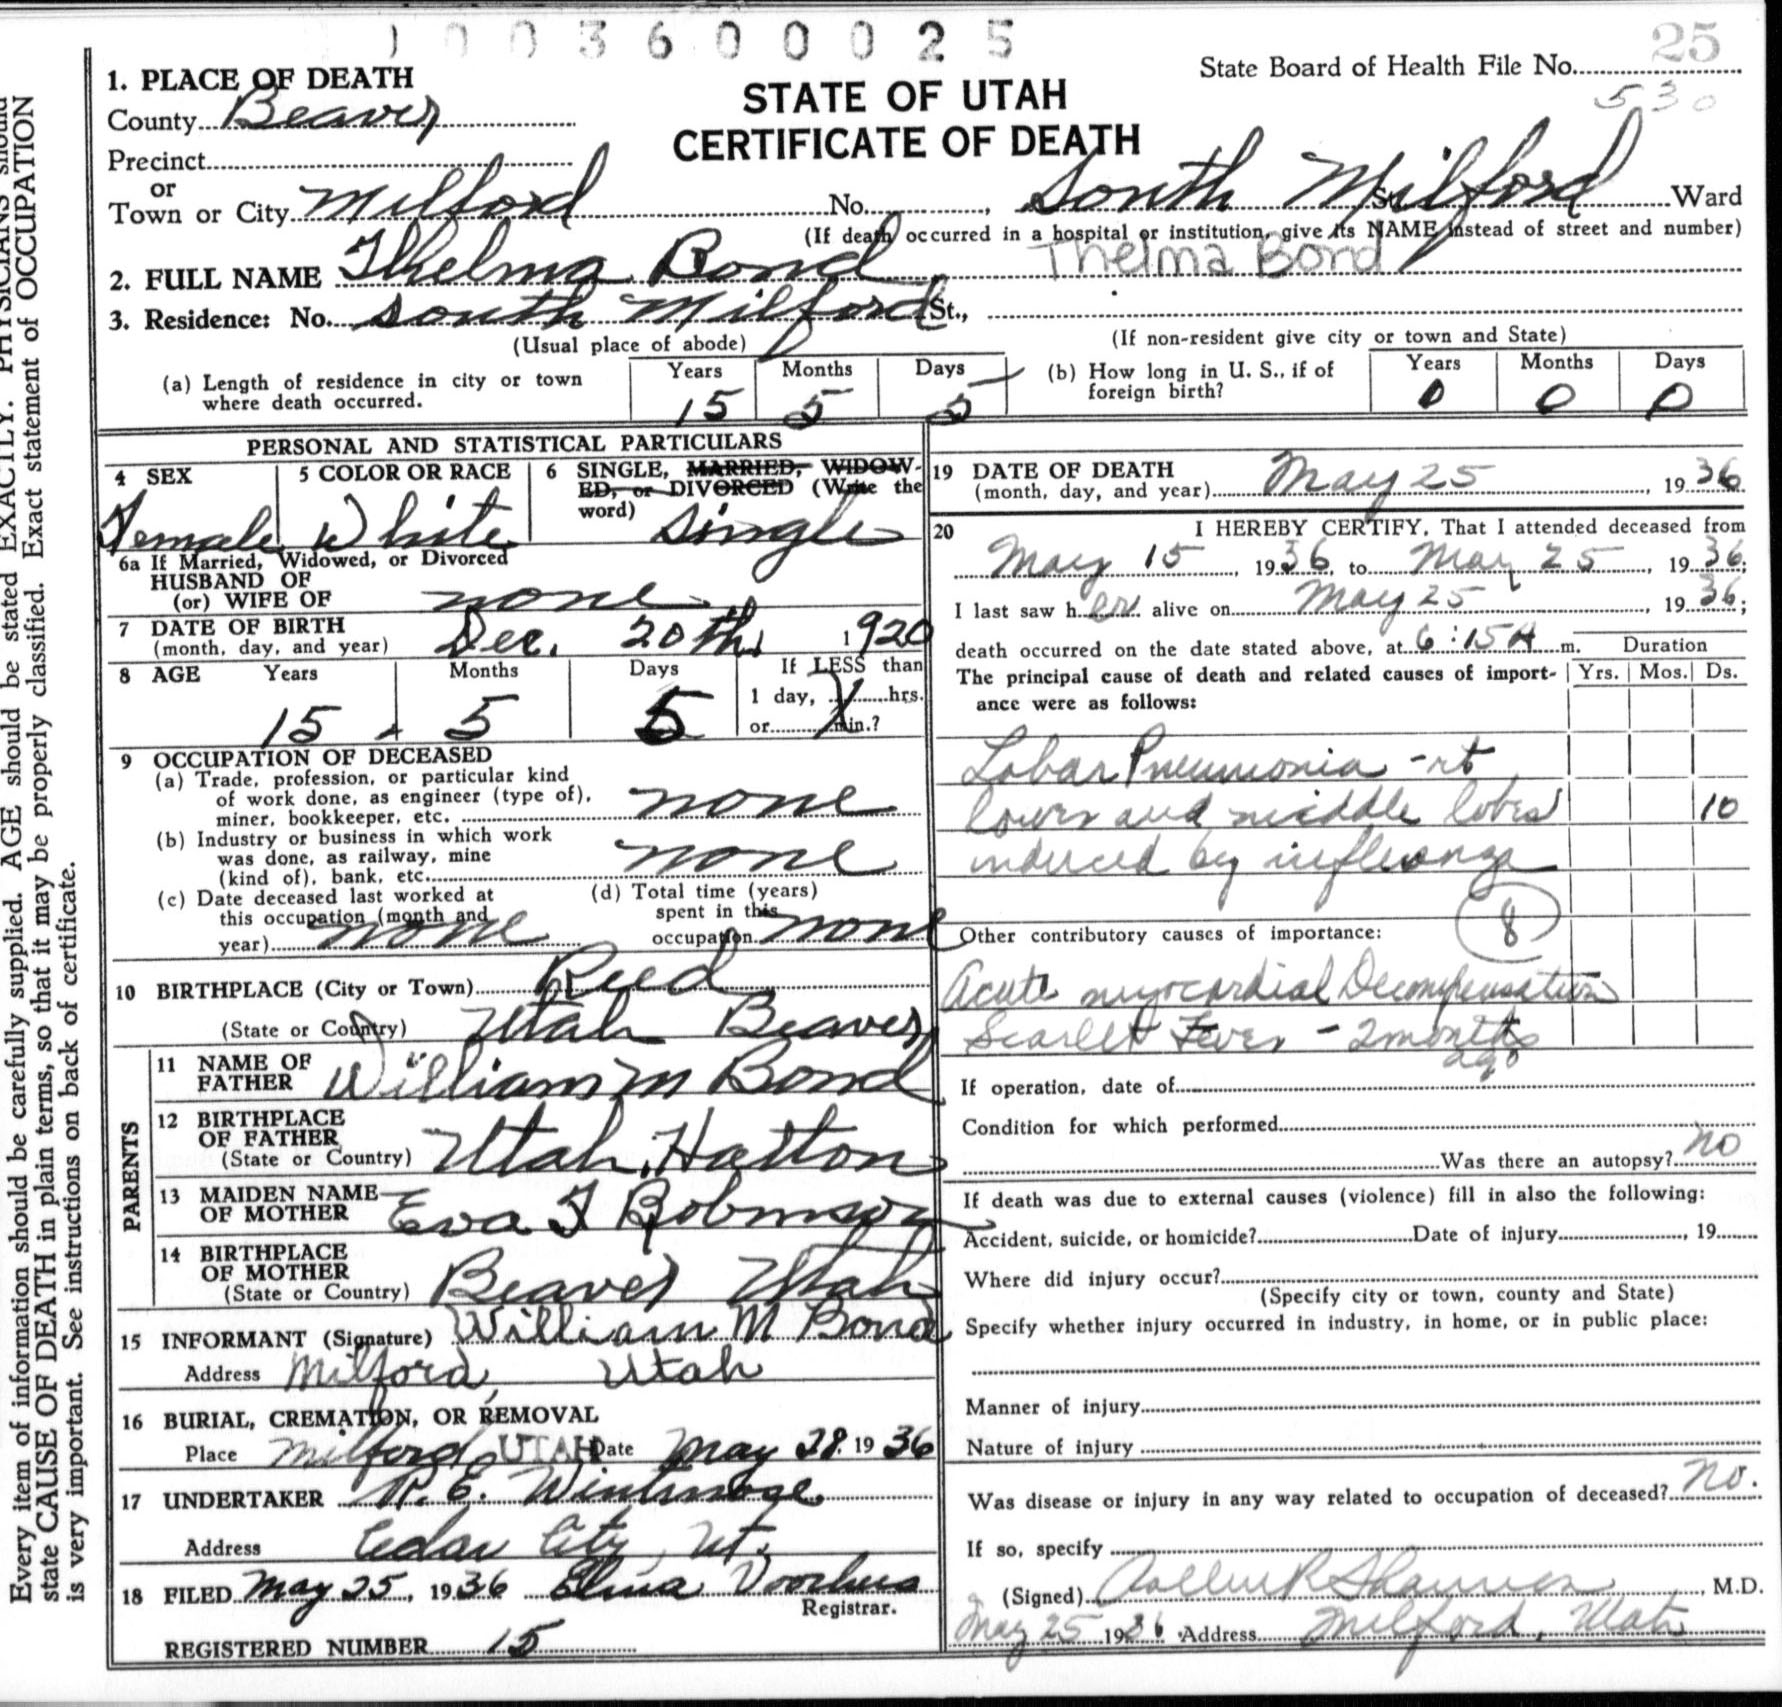 1 0 0 3 6 0 0 0 2 5
25
State Board of Health File No.
530
1. PLACE OF DEATH
STATE OF UTAH
CERTIFICATE OF DEATH
County Beaver
Precinct
or
Town or City Milford No. , South Milford St. Ward
(If death occurred in a hospital or institution, give its NAME instead of street and number)
2. FULL NAME Thelma Bond Thelma Bond
3. Residence: No. South Milford St.,
(Usual place of abode) (If non-resident give city or town and State)
(a) Length of residence in city or town where death occurred. Years 15 Months 5 Days 5
(b) How long in U. S., if of foreign birth? Years 0 Months 0 Days 0
PERSONAL AND STATISTICAL PARTICULARS
4 SEX Female
5 COLOR OR RACE White
6 SINGLE, MARRIED, WIDOW-
ED, or DIVORCED (Write the
word) Single
6a If Married, Widowed, or Divorced
HUSBAND OF
(or) WIFE OF none
7 DATE OF BIRTH
(month, day, and year) Dec. 20th, 1920
8 AGE Years 15 Months 5 Days 5
If LESS than
1 day, hrs.
or min.?
9 OCCUPATION OF DECEASED
(a) Trade, profession, or particular kind
of work done, as engineer (type of),
miner, bookkeeper, etc. none
(b) Industry or business in which work
was done, as railway, mine
(kind of), bank, etc. none
(c) Date deceased last worked at
this occupation (month and
year) none
(d) Total time (years)
spent in this
occupation none
10 BIRTHPLACE (City or Town) Reed
(State or Country) Utah Beaver
PARENTS
11 NAME OF
FATHER William M Bond
12 BIRTHPLACE
OF FATHER
(State or Country) Utah, Hatton
13 MAIDEN NAME
OF MOTHER Eva F Robinson
14 BIRTHPLACE
OF MOTHER
(State or Country) Beaver Utah
15 INFORMANT (Signature) William M Bond
Address Milford, Utah
16 BURIAL, CREMATION, OR REMOVAL
Place Milford, UTAH Date May 28, 1936
17 UNDERTAKER
Address Cedar City, Ut.
18 FILED May 25, 1936 Voorhees
Registrar.
REGISTERED NUMBER 15
19 DATE OF DEATH
(month, day, and year) May 25, 1936
20 I HEREBY CERTIFY, That I attended deceased from
May 15, 1936, to May 25, 1936;
I last saw her alive on May 25, 1936;
death occurred on the date stated above, at 6:15 A m.
Duration
Yrs. Mos. Ds.
The principal cause of death and related causes of import-
ance were as follows:
Lobar Pneumonia - rt
lower and middle lobes 10
induced by influenza
8
Other contributory causes of importance:
Acute myocardial Decompensation
Scarlet Fever - 2 months
ago
If operation, date of
Condition for which performed
Was there an autopsy? no
If death was due to external causes (violence) fill in also the following:
Accident, suicide, or homicide? Date of injury , 19
Where did injury occur?
(Specify city or town, county and State)
Specify whether injury occurred in industry, in home, or in public place:
Manner of injury
Nature of injury
Was disease or injury in any way related to occupation of deceased? no.
If so, specify
(Signed) , M.D.
May 25 1936 Address Milford, Utah
EXACTLY. PHYSICIANS should
Every item of information should be carefully supplied. AGE should be stated
state CAUSE OF DEATH in plain terms, so that it may be properly classified. Exact statement of OCCUPATION
is very important. See instructions on back of certificate.